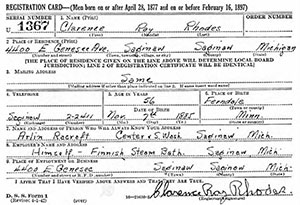 REGISTRATION CARD—(Men born on or after April 28, 1877 and on or before February 16, 1897)
SERIAL NUMBER 1. NAME (Print) ORDER NUMBER
U 1367 Clarence Ray Rhodes
2. PLACE OF RESIDENCE (Print)
4400 E Genesee Ave. Saginaw Saginaw Michigan
[THE PLACE OF RESIDENCE GIVEN ON THE LINE ABOVE WILL DETERMINE LOCAL BOARD
JURISDICTION; LINE 2 OF REGISTRATION CERTIFICATE WILL BE IDENTICAL]
3. MAILING ADDRESS
Same
4. TELEPHONE 5. AGE IN YEARS 6. PLACE OF BIRTH
56 Ferndale
Saginaw 2-2411 Nov. 7th 1885 Minn.
7. NAME AND ADDRESS OF PERSON WHO WILL ALWAYS KNOW YOUR ADDRESS
Center & S. Wash Saginaw Mich.
8. EMPLOYER'S NAME AND ADDRESS
Himself - Finnish Steam Bath Mich.
9. PLACE OF EMPLOYMENT OR BUSINESS
4400 E Genesee Saginaw Saginaw Mich.
I AFFIRM THAT I HAVE VERIFIED ABOVE ANSWERS AND THAT THEY ARE TRUE.
D. S. S. Form 1
(Revised 4-1-42)
Clarence Ray Rhodes